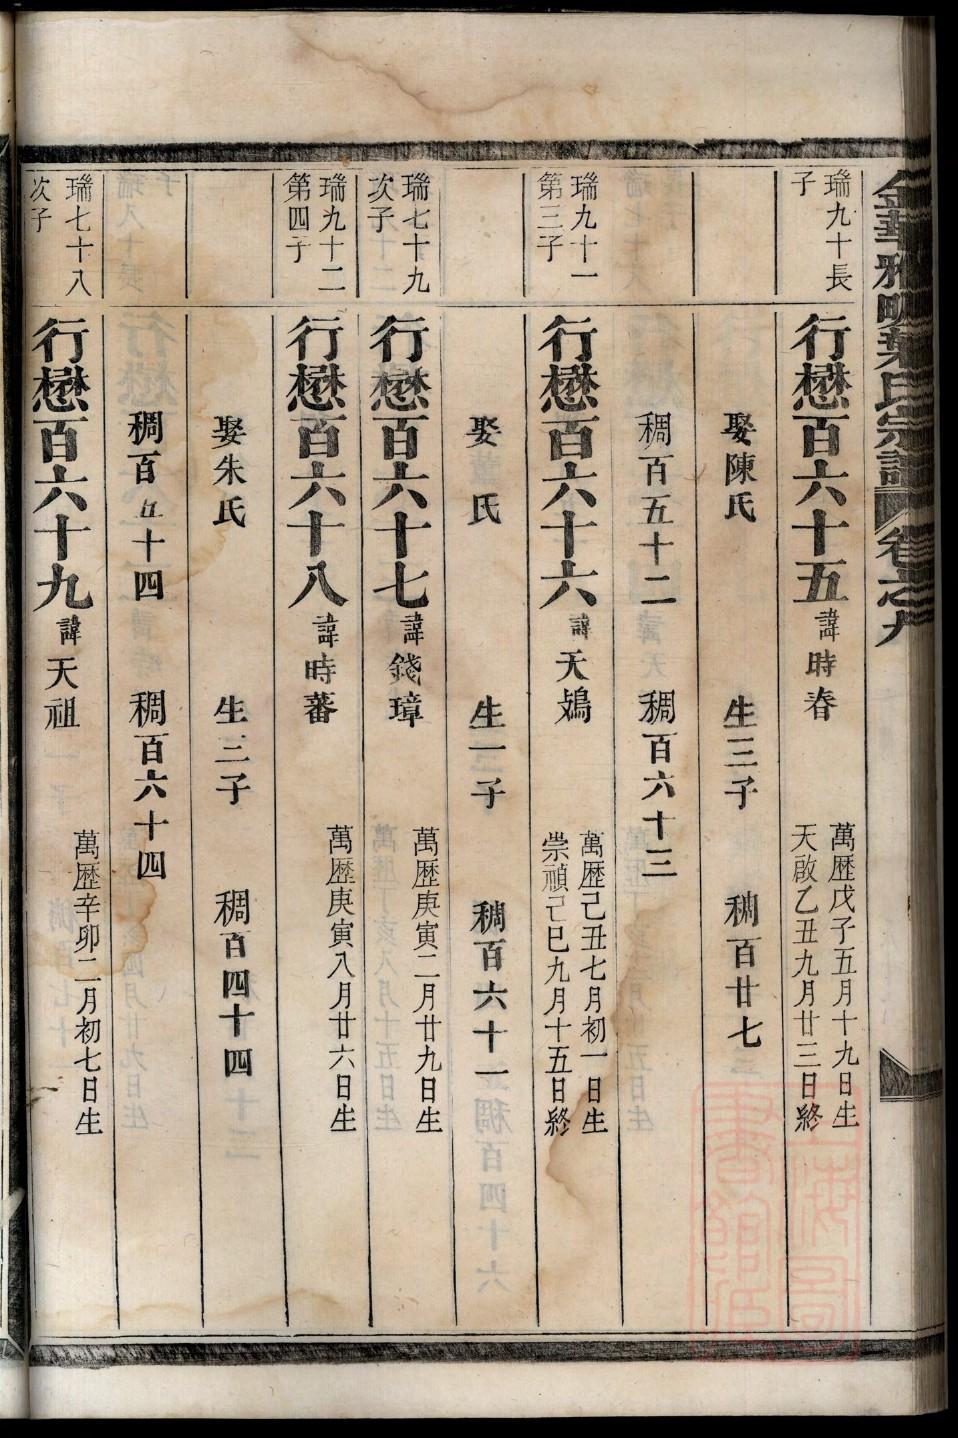 金華雅畈葉氏宗譜 卷之九
瑞九十長
子
行懋百六十五 諱時春
萬歷戊子五月十九日生
天啟乙丑九月廿三日終
娶陳氏 生三子 稠百廿七
稠百五十二 稠百六十三
瑞九十一
第三子
行懋百六十六 諱天鴻
萬歷己丑七月初一日生
崇禎己巳九月十五日終
娶 氏 生一子 稠百六十一
瑞七十九
次子
行懋百六十七 諱錢璋
萬歷庚寅二月廿九日生
瑞九十二
第四子
行懋百六十八 諱時蕃
萬歷庚寅八月廿六日生
娶朱氏 生三子 稠百四十四
稠百五十四 稠百六十四
瑞七十八
次子
行懋百六十九 諱天祖
萬歷辛卯二月初七日生